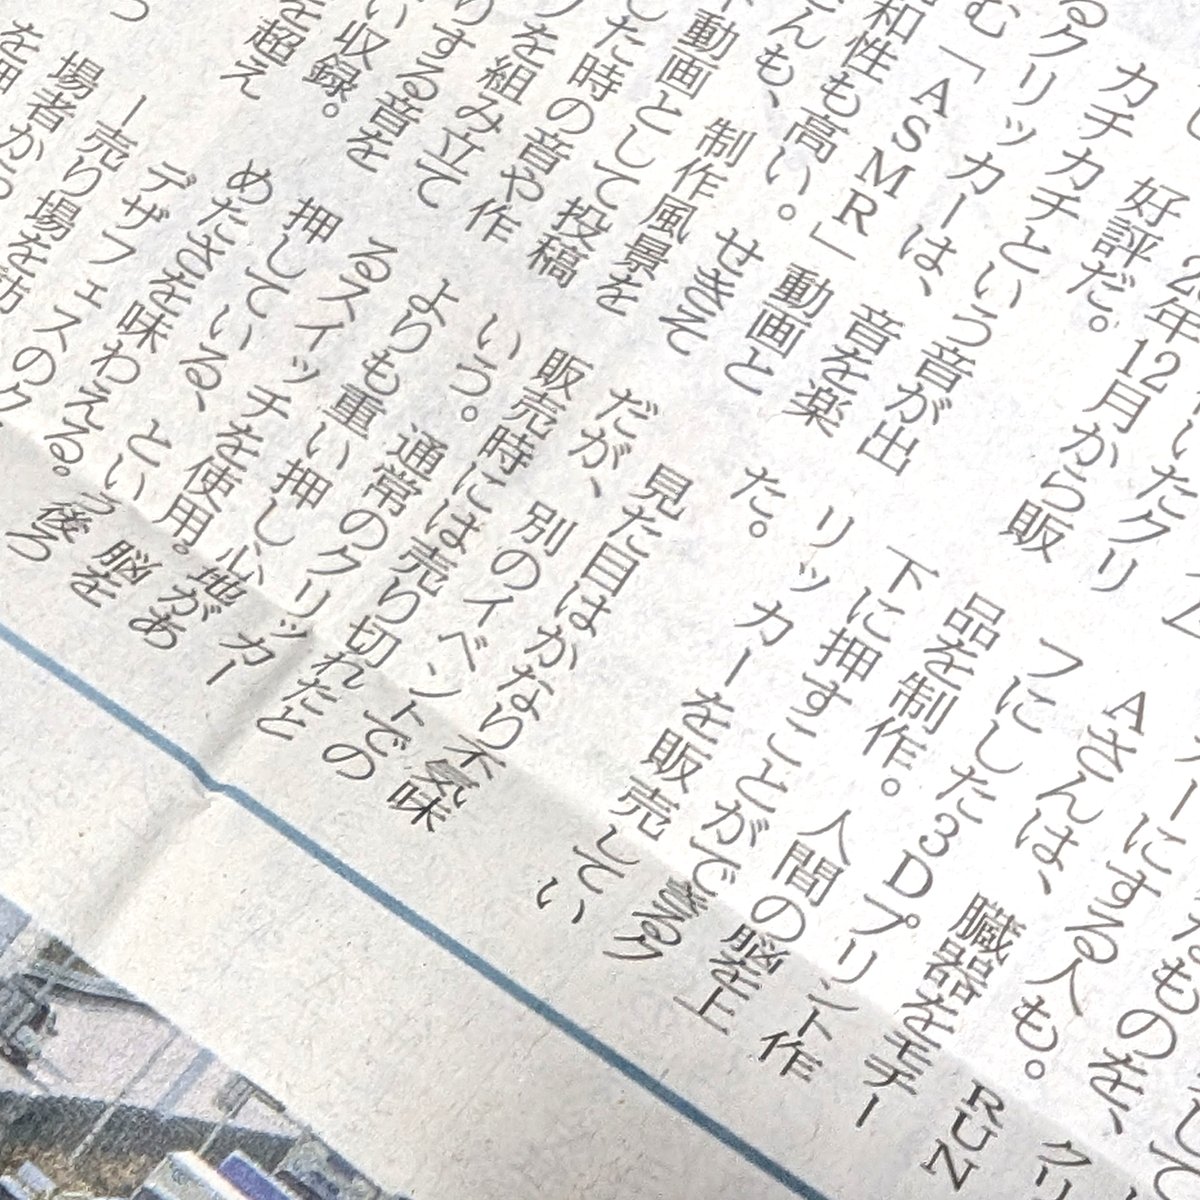 いたクリ
年12月から販
好評だ。
カチカチという音が出
るクリッカーは、音を楽
む「ASMR」動画と
和性も高い。せきそ
んも、制作風景を
動画として投稿
した時の音や作
を組み立て
りする音を
い収録。
を超え
たものを、
ーにする人も。クリ
RUN
Aさんは、臓器をモチー
フにした3Dプリント作
品を制作。人間の脳を上
下に押すことができるク
リッカーを販売してい
た。
見た目はかなり不気味
だが、別のイベントでの
販売時には売り切れたと
いう。通常のクリッカー
よりも重い押し心地があ
るスイッチを使用。脳を
押している、という後ろ
めたさを味わえる。
デザフェスのク
ー売り場を訪
場者から